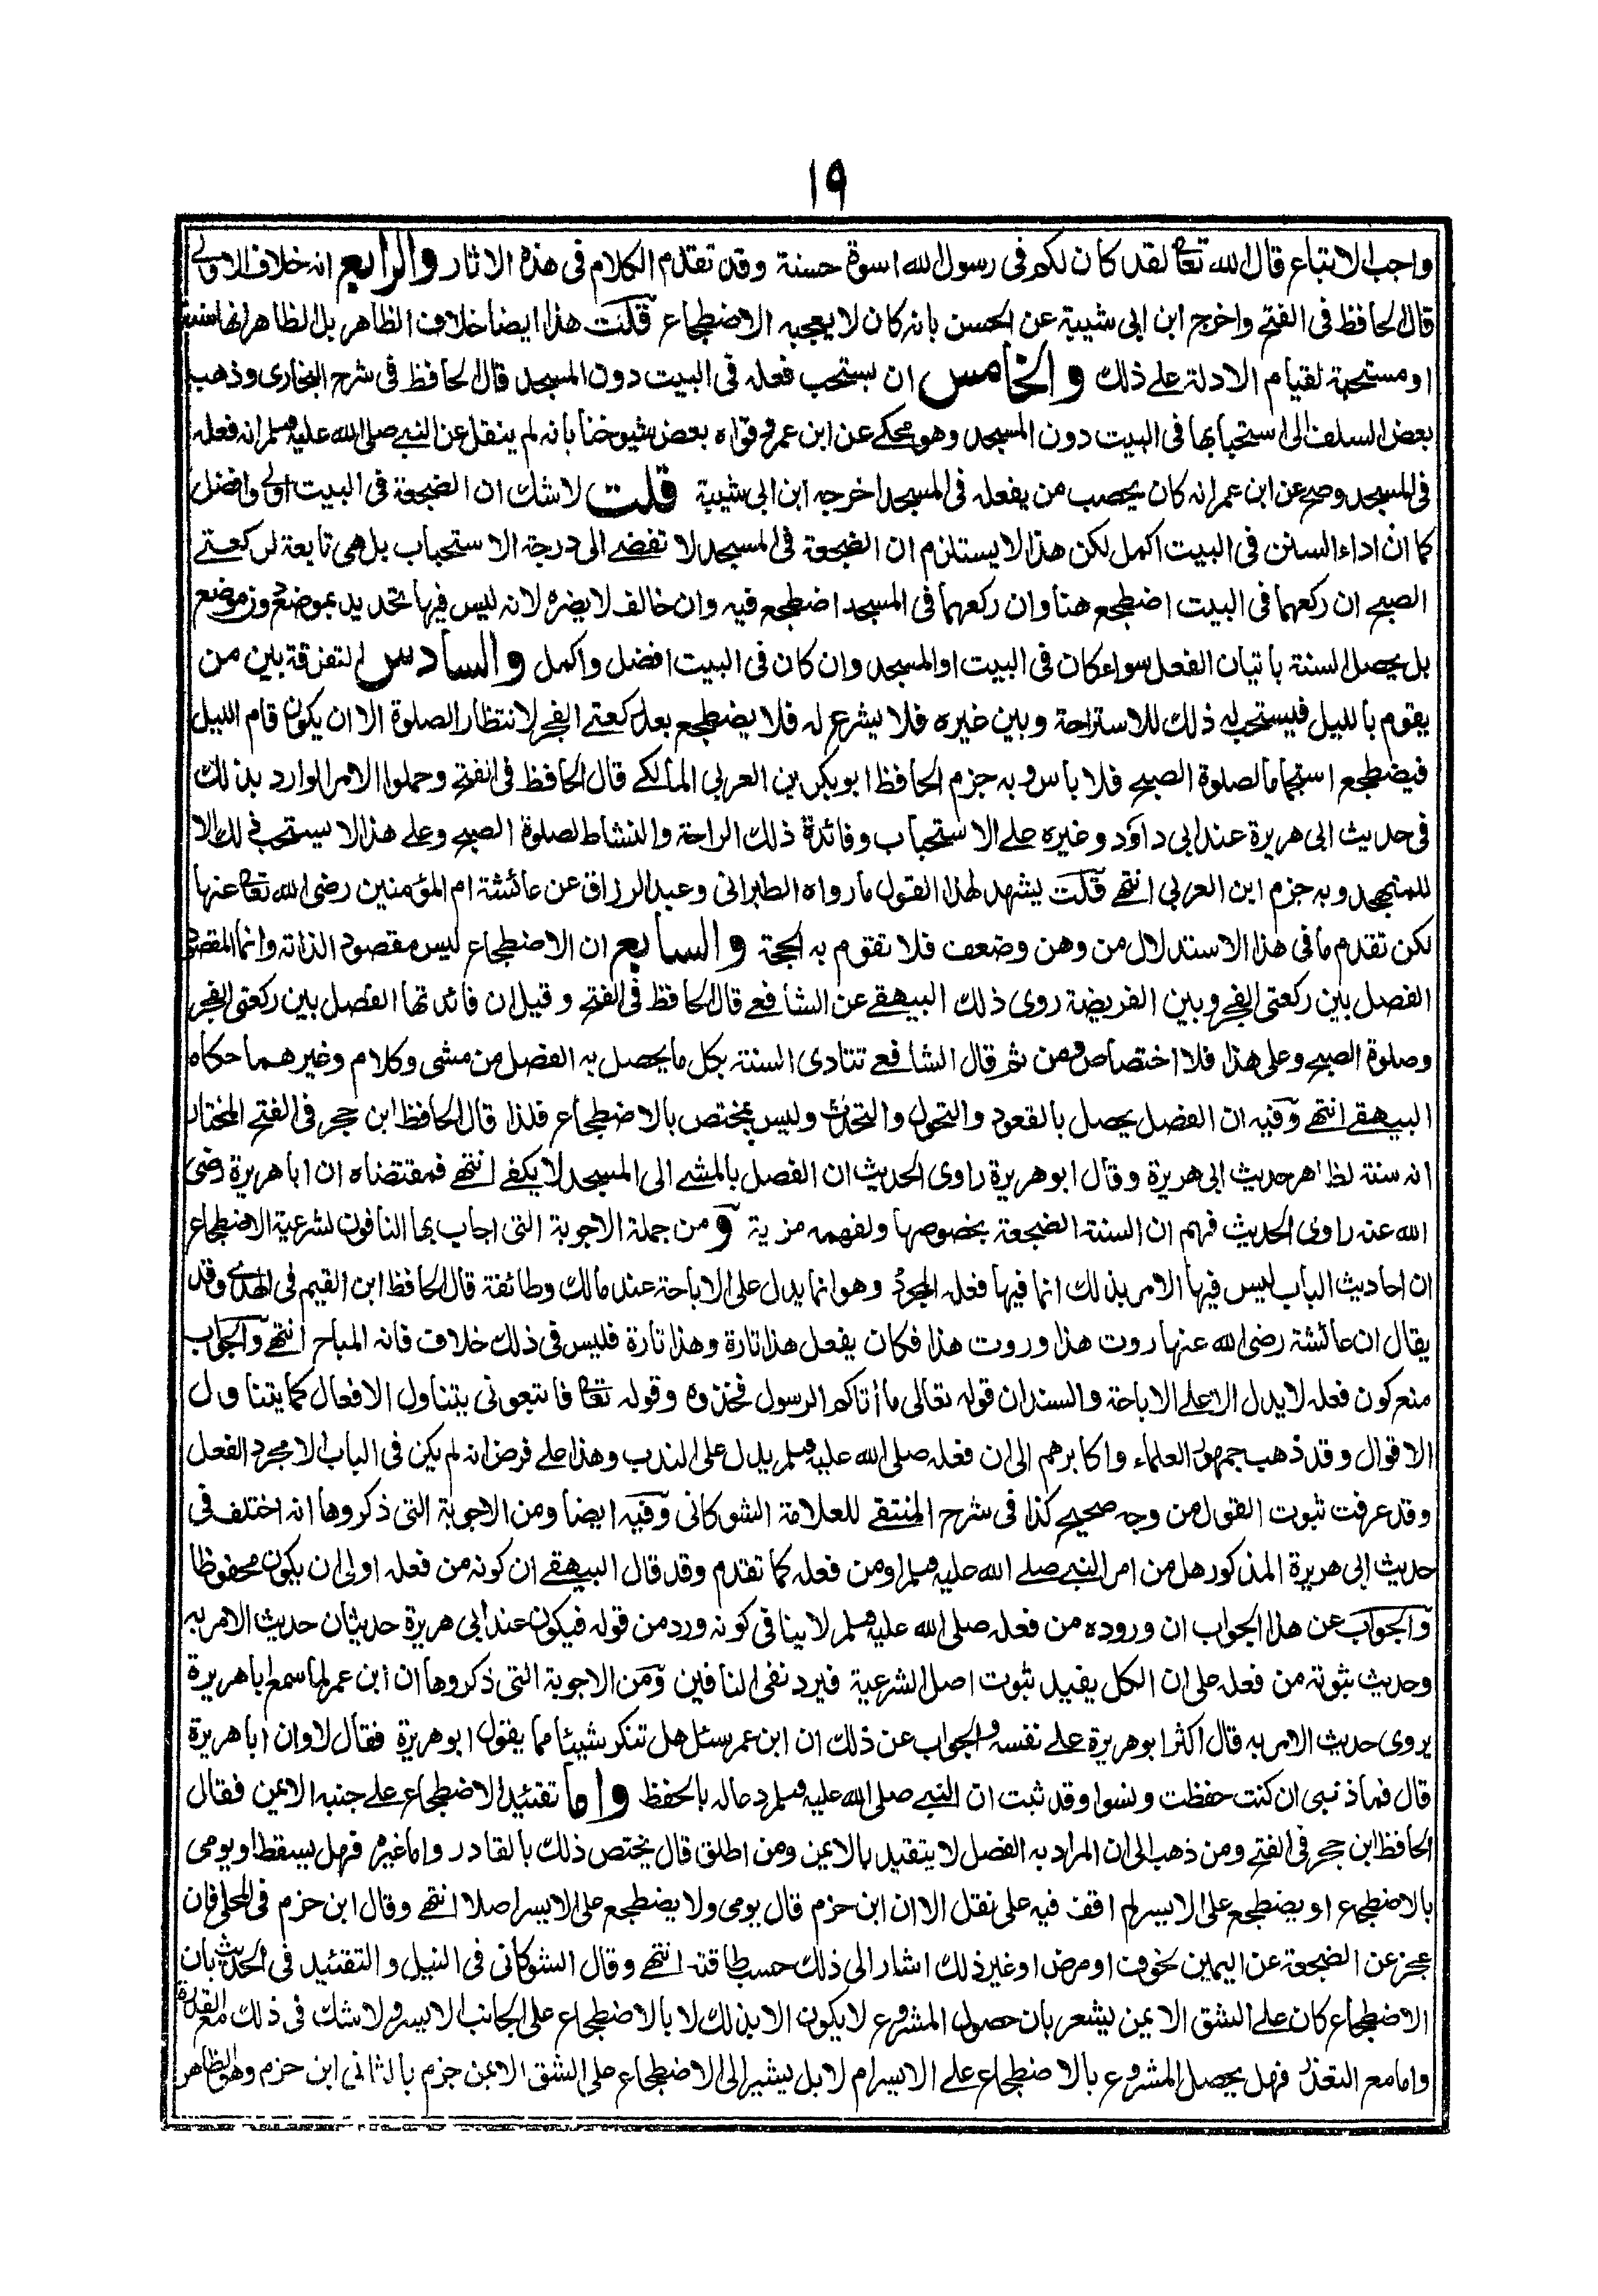 ١٩
واجب الاتباع قال الله تعالى لقد كان لكم في رسول الله اسوة حسنة وقد تقدم الكلام في هذه الاثار والرابع انه خلاف الاولى
قال الحافظ في الفتح واخرج ابن ابي شيبة عن الحسن بانه كان لا يعجبه الاضطجاع قلت هذا ايضا خلاف الظاهر بل الظاهر انها سنة
او مستحبة لقيام الادلة على ذلك والخامس ان يستحب فعله في البيت دون المسجد قال الحافظ في شرح البخاري وذهب
بعض السلف الى استحبابها في البيت دون المسجد وهو محكي عن ابن عمر وقواه بعض شيوخنا بانه لم ينقل عن النبي صلى الله عليه وسلم انه فعله
في المسجد وصح عن ابن عمر انه كان يحصب من يفعله في المسجد اخرجه ابن ابي شيبة قلت لا شك ان الضجعة في البيت اولى وافضل
كما ان اداء السنن في البيت اكمل لكن هذا لا يستلزم ان الضجعة في المسجد لا تفضي الى درجة الاستحباب بل هي تابعة لركعتي
الصبح ان ركعهما في البيت اضطجع هنا وان ركعهما في المسجد اضطجع فيه وان خالف لا يضره لانه ليس فيها تحديد بموضع دون موضع
بل يحصل السنة باتيان الفعل سواء كان في البيت او المسجد وان كان في البيت افضل واكمل والسادس التفرقة بين من
يقوم بالليل فيستحب له ذلك للاستراحة وبين غيره فلا يشرع له فلا يضطجع بعد ركعتي الفجر لانتظار الصلوة الا ان يكون قام الليل
فيضطجع استجماما لصلوة الصبح فلا باس وبه جزم الحافظ ابو بكر بن العربي المالكي قال الحافظ في الفتح وحملوا الامر الوارد بذلك
في حديث ابي هريرة عند ابي داؤد وغيره على الاستحباب وفائدة ذلك الراحة والنشاط لصلوة الصبح وعلى هذا لا يستحب ذلك الا
للمتهجد وبه جزم ابن العربي انتهى قلت يشهد لهذا القول ما رواه الطبراني وعبد الرزاق عن عائشة ام المؤمنين رضي الله تعالى عنها
لكن تقدم ما في هذا الاستدلال من وهن وضعف فلا تقوم به الحجة والسابع ان الاضطجاع ليس مقصود الذاته وانما المقصود
الفصل بين ركعتي الفجر وبين الفريضة روى ذلك البيهقي عن الشافعي قال الحافظ في الفتح وقيل ان فائدتها الفصل بين ركعتي الفجر
وصلوة الصبح وعلى هذا فلا اختصاص ومن ثم قال الشافعي تتادى السنة بكل ما يحصل به الفصل من مشي وكلام وغيرهما حكاه
البيهقي انتهى وفيه ان الفصل يحصل بالقعود والتحول والتحدث وليس بمختص بالاضطجاع فلذا قال الحافظ ابن حجر في الفتح المختار
انه سنة لظاهر حديث ابي هريرة وقال ابو هريرة راوي الحديث ان الفصل بالمشي الى المسجد لا يكفي انتهى فمقتضاه ان ابا هريرة رضي
الله عنه راوي الحديث فهم ان السنة الضجعة بخصوصها ولفهمه مزية ومن جملة الاجوبة التي اجاب بها النافون لشرعية الاضطجاع
ان احاديث الباب ليس فيها الامر بذلك انما فيها فعله المجرد وهو انما يدل على الاباحة عند مالك وطائفة قال الحافظ ابن القيم في الهدي وقد
يقال ان عائشة رضي الله عنها روت هذا وروت هذا فكان يفعل هذا تارة وهذا تارة فليس في ذلك خلاف فانه المباح انتهى والجواب
منع كون فعله لا يدل الا على الاباحة والسند ان قوله تعالى ما اٰتاكم الرسول فخذوه وقوله تعالى فاتبعوني يتناول الافعال كما يتناول
الاقوال وقد ذهب جمهور العلماء واكابرهم الى ان فعله صلى الله عليه وسلم يدل على الندب وهذا على فرض انه لم يكن في الباب الا مجرد الفعل
وقد عرفت ثبوت القول من وجه صحيح كذا في شرح المنتقى للعلامة الشوكاني وفيه ايضا ومن الاجوبة التي ذكروها انه اختلف في
حديث ابي هريرة المذكور هل من امر النبي صلى الله عليه وسلم او من فعله كما تقدم وقد قال البيهقي ان كونه من فعله اولى ان يكون محفوظا
والجواب عن هذا الجواب ان وروده من فعله صلى الله عليه وسلم لا ينافي كونه ورد من قوله فيكون عند ابي هريرة حديثان حديث الامر به
وحديث ثبوته من فعله على ان الكل يفيد ثبوت اصل الشرعية فيرد نفي النافين ومن الاجوبة التي ذكروها ان ابن عمر لما سمع ابا هريرة
يروي حديث الامر به قال اكثر ابو هريرة على نفسه والجواب عن ذلك ان ابن عمر سئل هل تنكر شيئا مما يقول ابو هريرة فقال لا وان ابا هريرة
قال فما ذنبي ان كنت حفظت ونسوا وقد ثبت ان النبي صلى الله عليه وسلم دعا له بالحفظ واما تقئيد الاضطجاع على جنبه الايمن فقال
الحافظ ابن حجر في الفتح ومن ذهب الى ان المراد به الفصل لا يتقيد بالايمن ومن اطلق قال يختص ذلك بالقادر واما غيره فهل يسقط او يومي
بالاضطجاع او يضطجع على الايسر لم اقف فيه على نقل الا ان ابن حزم قال يومي ولا يضطجع على الايسر اصلا انتهى وقال ابن حزم في المحلى فان
عجز عن الضجعة عن اليمين لخوف او مرض او غير ذلك اشار الى ذلك حسب طاقته انتهى وقال الشوكاني في النيل والتقئيد في الحديث بان
الاضطجاع كان على الشق الايمن يشعر بان حصول المشروع لا يكون الا بذلك لا بالاضطجاع على الجانب الايسر ولا شك في ذلك مع القدرة
واما مع التعذر فهل يحصل المشروع بالاضطجاع على الايسر ام لا بل يشير الى الاضطجاع على الشق الايمن جزم بالثاني ابن حزم وهو الظاهر